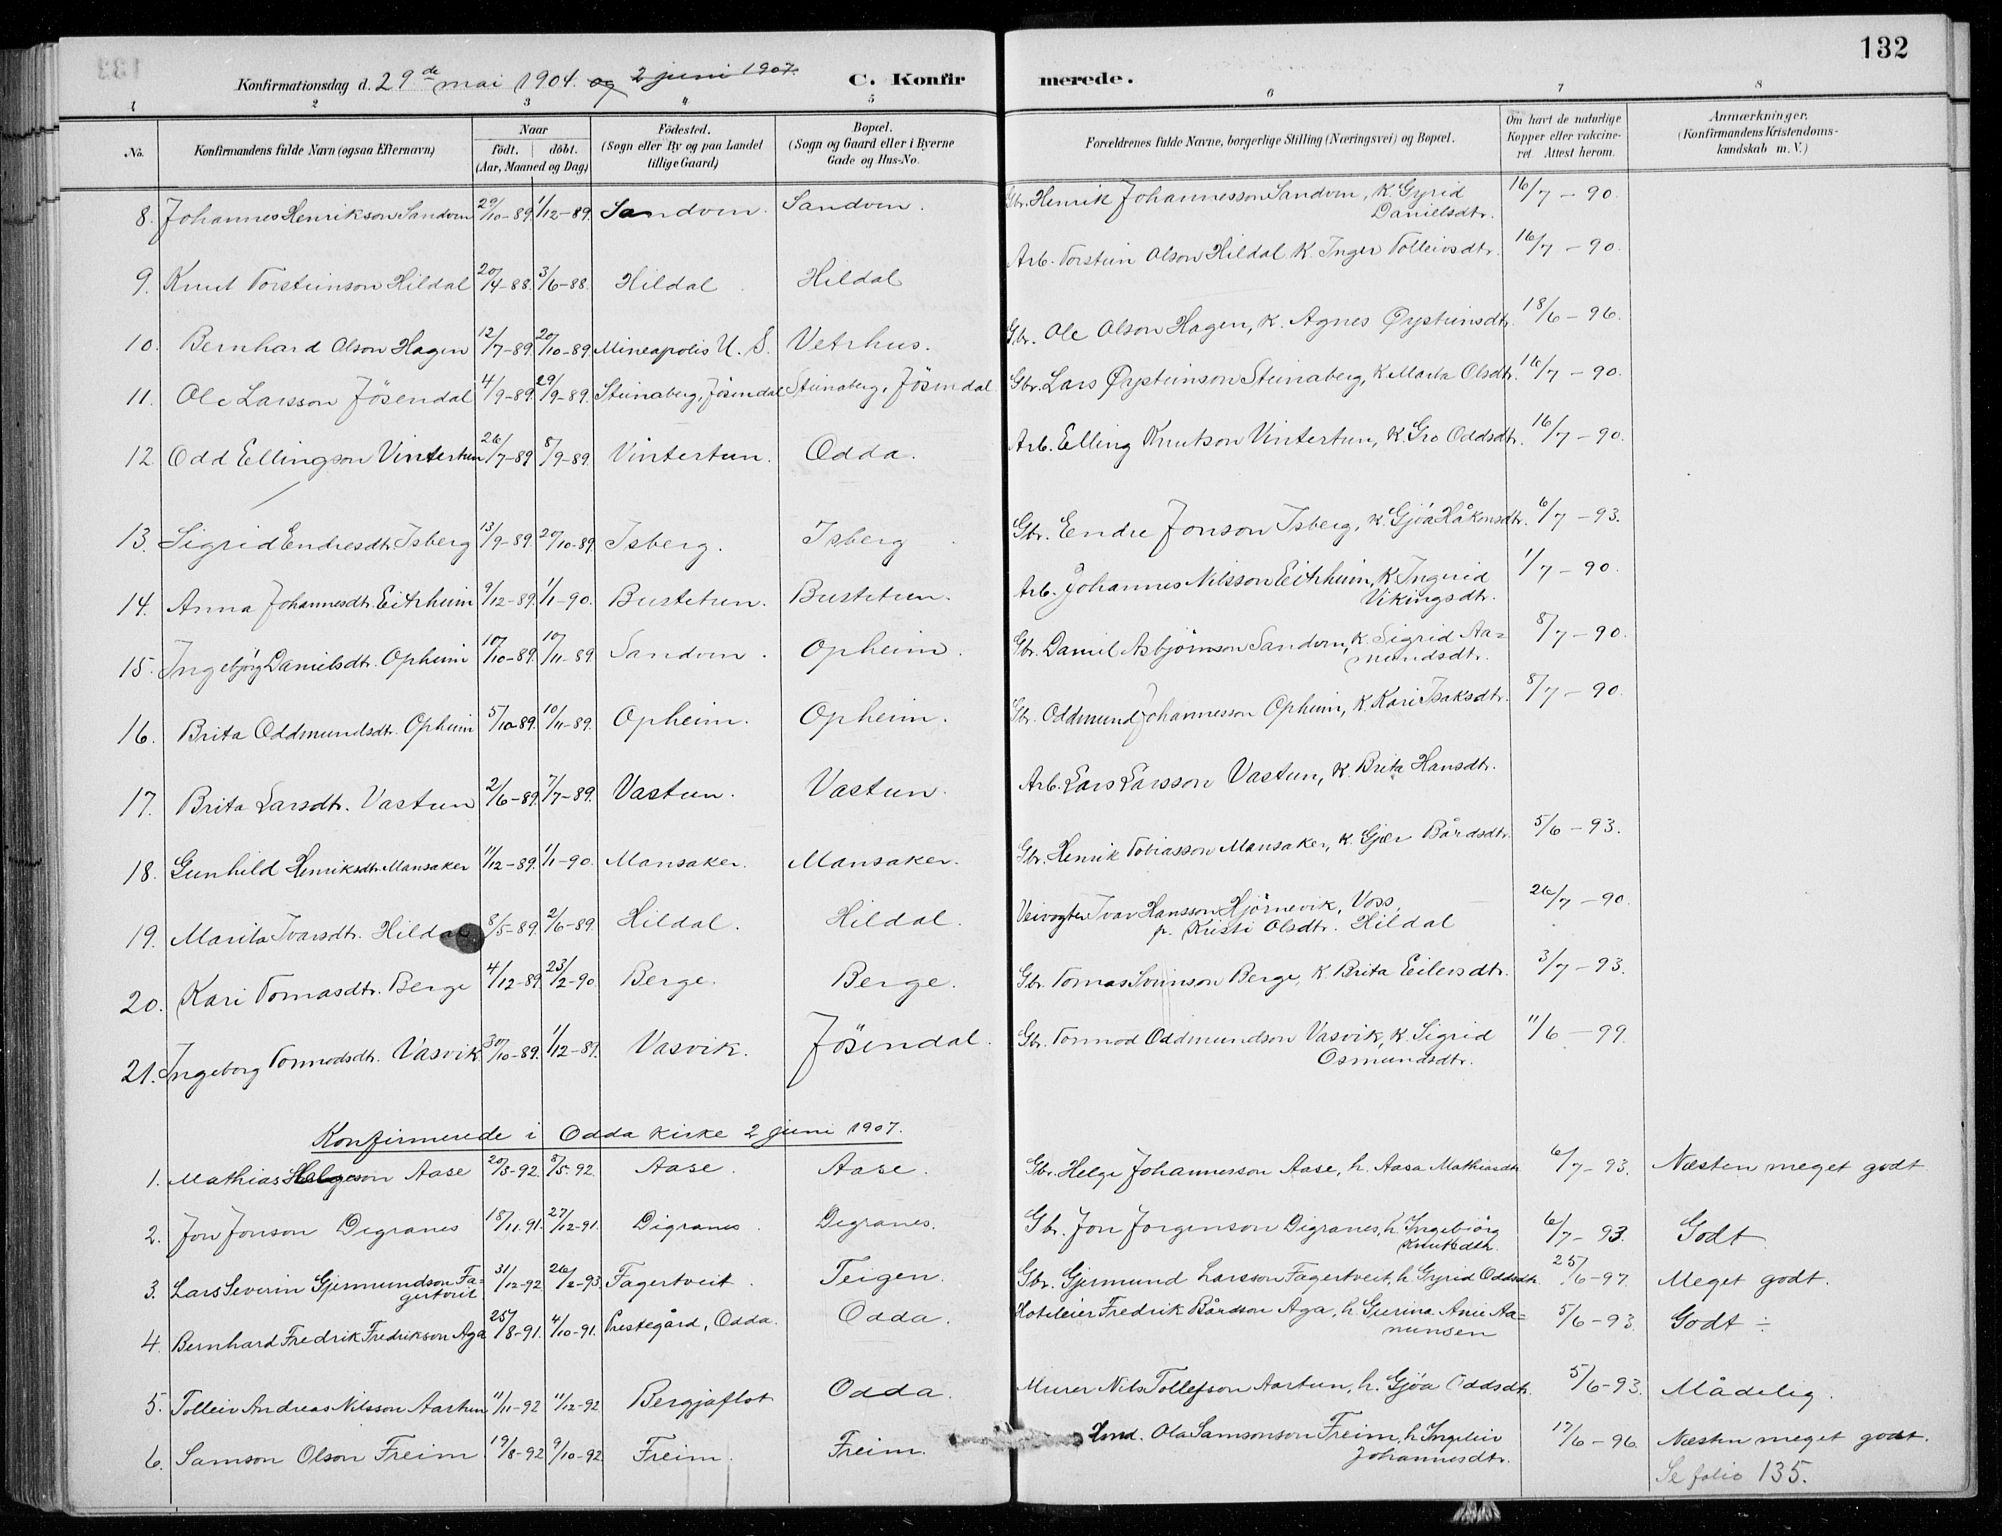 132
Konfirmationsdag d. 29de mai 1904. og 2 juni 1907. C. Konfirmerede.
1 2 3 4 5 6 7 8
No. Konfirmandens fulde Navn (ogsaa Efternavn) Naar født. døbt. (Aar, Maaned og Dag) Fødested. (Sogn eller By og paa Landet tillige Gaard) Bopæl. (Sogn og Gaard eller i Byerne Gade og Hus-No. Forældrenes fulde Navne, borgerlige Stilling (Næringsvei) og Bopæl. Om havt de naturlige Kopper eller vakcineret. Attest herom. Anmærkninger. (Konfirmandens Kristendomskundskab m. V.)
8. Johannes Henrikson Sandven 29/10-89. 1/12-89. Sandven. Sandven. Gbr. Henrik Johannesson Sandven, K. Gyrid Danielsdtr. 16/7-90.
9. Knut Torsteinson Hildal 20/4-88. 3/6-88. Hildal. Hildal Arb. Torstein Olson Hildal K. Inger Tolleivsdtr. 16/7-90.
10. Bernhard Olson Hagen 12/7-89. 20/10-89. Mineapolis U. S. Vetrhus. Gbr. Ole Olson Hagen, K. Agnes Øysteinsdtr. 18/6-96.
11. Ole Larsson Jösendal 4/9-89. 29/9-89. Steinaberg, Jösendal Steinaberg, Jösendal Gbr. Lars Øysteinson Steinaberg, K. Marta Olsdtr. 16/7-90.
12. Odd Ellingson Vintertun 26/7-89 8/9-89. Vintertun. Odda. Arb. Elling Knutson Vintertun, K. Gro Oddsdtr. 16/7-90.
13. Sigrid Endresdtr. Isberg 13/9-89. 20/10-89. Isberg. Isberg. Gbr. Endre Jonson Isberg, K. Gjöa Håkonsdtr. 6/7-93.
14. Anna Johannesdtr. Eitrheim 9/12-89. 1/1-90. Bustetun. Bustetun. Arb. Johannes Nilsson Eitrheim, K. Ingerid Vikingsdtr. 1/7-90.
15. Ingebjörg Danielsdtr. Opheim 10/10-89. 10/11-89 Sandven. Opheim. Gbr. Daniel Asbjörnson Sandven, K. Sigrid Aamundsdtr. 8/7-90.
16. Brita Oddmundsdtr. Opheim 5/10-89. 10/11-89. Opheim. Opheim. Gbr. Oddmund Johannesson Opheim, K. Kari Isaksdtr. 8/7-90.
17. Brita Larsdtr. Vastun 2/6-89. 7/7-89. Vastun. Vastun. Arb. Lars Larsson Vastun, K. Brita Hansdtr.
18. Gunhild Henriksdtr. Mansaker 11/12-89. 1/1-90. Mansaker. Mansaker. Gbr. Henrik Tobiasson Mansaker, K. Gjær Bårdsdtr. 5/6-93.
19. Marita Ivarsdtr. Hildal 8/5-89. 2/6-89. Hildal. Hildal. Veivogter Ivar Hansson Hjörnevik, Voss, p. Kristi Olsdtr. Hildal 26/7-90.
20. Kari Tomasdtr. Berge 4/12-89. 23/2-90. Berge. Berge. Gbr. Tomas Sveinson Berge, K. Brita Eilevsdtr. 3/7-93.
21. Ingeborg Tormodsdtr. Vasvik 30/10-89. 1/12-89. Vasvik. Jösendal. Gbr. Tormod Oddmundson Vasvik, K. Sigrid Osmundsdtr. 11/6-99.
Konfirmerede i Odda kirke 2 juni 1907.
1. Mathias Helgeson Aase 20/3-92. 8/5-92. Aase. Aase. Gbr. Helge Johannesson Aase, h. Aasa Mathiasdtr. 6/7-93. Næsten meget godt
2. Jon Jonson Digranes 18/11.91. 27/12-91. Digranes. Digranes. Gbr. Jon Jorgenson Digranes, h. Ingebjörg Knutsdtr. 6/7-93. Godt.
3. Lars Severin Gjermundson Fagertveit 31/12-92 26/2-93. Fagertveit. Teigen. Gbr. Gjermund Larsson Fagertveit, h. Gyrid Oddsdtr. 25/6-97. Meget godt.
4. Bernhard Fredrik Fredrikson Aga 25/8-91. 4/10-91. Prestegård, Odda. Odda. Hoteleier Fredrik Bårdson Aga, h. Gurina Anie Aamunsen 5/6-93. Godt ÷
5. Tolleiv Andreas Nilsson Aartun 11/11-92 11/12-92 Bergjaflot Odda. Murer Nils Tollefson Aartun, h. Gjöa Oddsdtr. 5/6-93. Mådelig.
6. Samson Olson Freim 19/8-92 9/10-92 Freim. Freim. Hmd. Ola Samsonson Freim, h. Ingeleiv Johannesdtr. 17/6-96. Næsten meget godt.
Se folio 135.